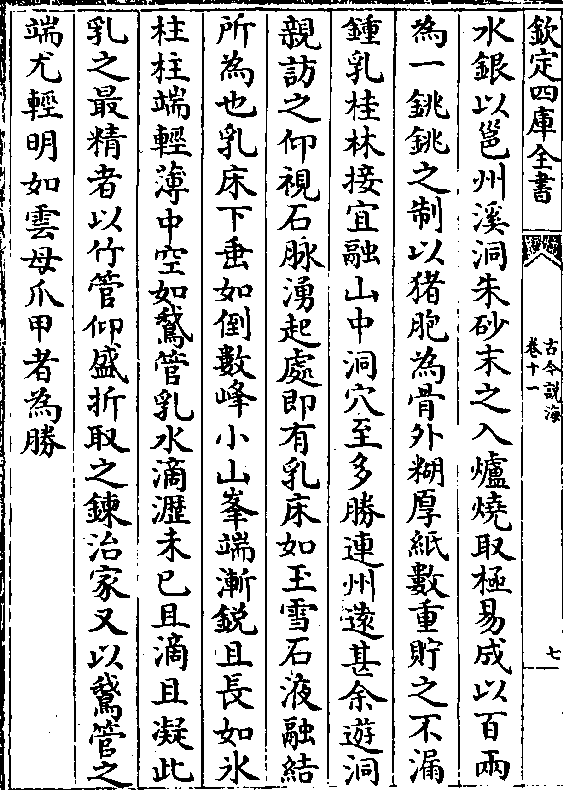 欽定四庫全書
古今說海
卷十一
七
水銀以邕州溪洞朱砂末之入爐燒取極易成以百兩
為一銚銚之制以猪胞為骨外糊厚紙數重貯之不漏
鍾乳桂林接宜融山中洞穴至多勝連州逺甚余遊洞
親訪之仰視石脉湧起處即有乳床如玉雪石液融結
所為也乳床下垂如倒數峰小山峯端漸銳且長如氷
柱柱端輕薄中空如鵞管乳水滴瀝未已且滴且凝此
乳之最精者以竹管仰盛折取之鍊治家又以鵞管之
端尤輕明如雲母爪甲者為勝